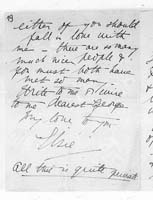 either of you should
fall in love with
me – there are so many
much nicer people &
you must both have
met so many
Write to me
to me dearest George
my love to you
Elsie
All this is quite